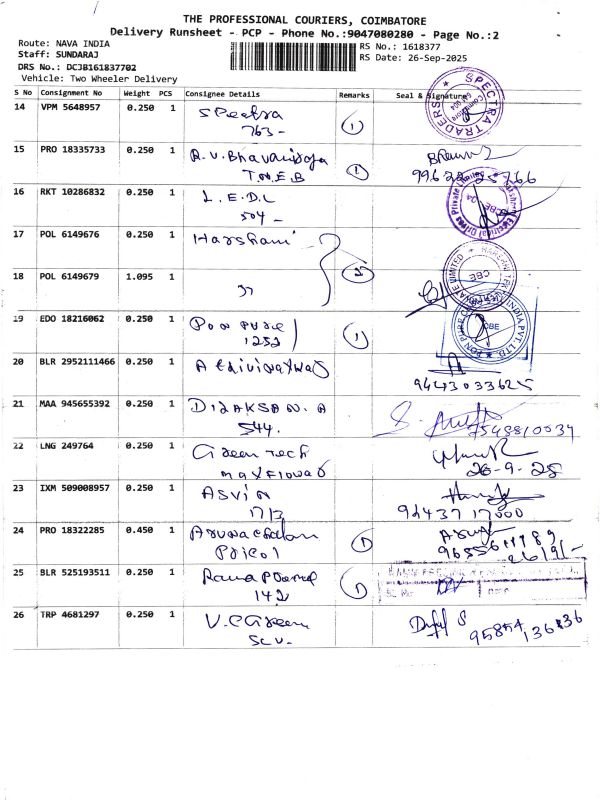 THE PROFESSIONAL COURIERS, COIMBATORE
Delivery Runsheet - PCP - Phone No.:9047080280 - Page No.:2
Route: NAVA INDIA
Staff: SUNDARAJ
DRS No.: DCJB161837702
Vehicle: Two Wheeler Delivery
RS No.: 1618377
RS Date: 26-Sep-2025
S No Consignment No Weight PCS Consignee Details Remarks Seal & Signature
14 VPM 5648957 0.250 1 Spectra
763 - 1
SPECTRA TRADERS
15 PRO 18335733 0.250 1
T.N.E.B 1
16 RKT 10286832 0.250 1 L.E.D.L
504 -
Electrical Drives Private Limited
17 POL 6149676 0.250 1 Harshani
18 POL 6149679 1.095 1
CBE
19 EDO 18216062 0.250 1 Pon pure
1252 1
PON PURE INDIA PVT. LTD.
CBE
20 BLR 2952111466 0.250 1
9443033625
21 MAA 945655392 0.250 1 DILAKSAN.A
544.
22 LNG 249764 0.250 1 Green Tech
Mayflower
26-9-25
23 IXM 509008957 0.250 1 ASVIN
1713
94437 17000
24 PRO 18322285 0.450 1 Arunachalam
Pricol 1
25 BLR 525193511 0.250 1
142 1
26 TRP 4681297 0.250 1 V.C Green
95854 136836